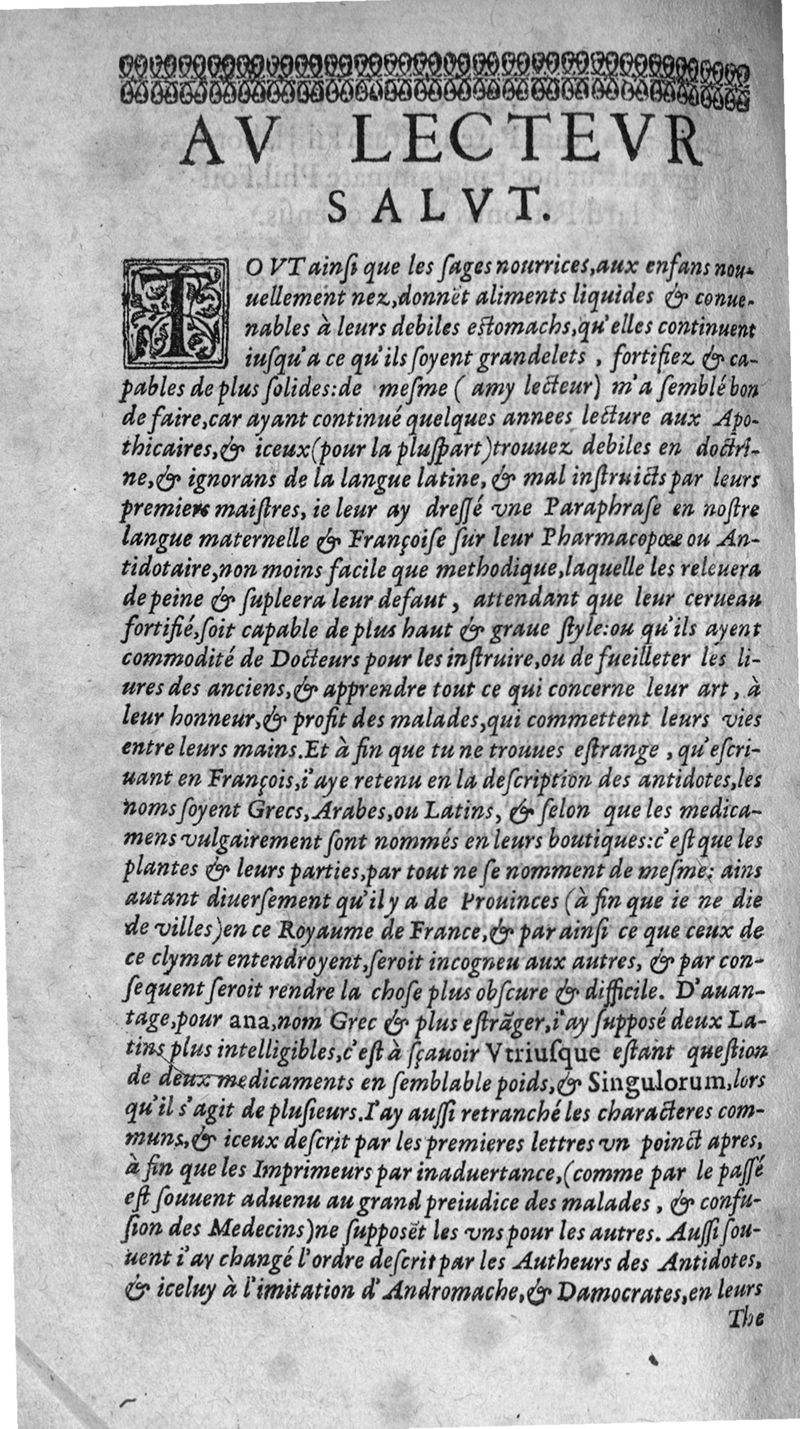 AV LECTEVR
SALVT.
TOVT ainſi que les ſages nourrices,aux enfans nou-
uellement nez,donnẽt aliments liquides & conue-
nables à leurs debiles eſtomachs,qu'elles continuent
iuſqu'a ce qu'ils ſoyent grandelets , fortifiez & ca-
pables de plus ſolides:de meſme ( amy lecteur) m'a ſemblé bon
de faire,car ayant continué quelques annees lecture aux Apo-
thicaires,& iceux(pour la pluſpart)trouuez debiles en doctri-
ne,& ignorans de la langue latine, & mal inſtruicts par leurs
premiers maiſtres, ie leur ay dreſſé vne Paraphraſe en noſtre
langue maternelle & Françoiſe ſur leur Pharmacopœe ou An-
tidotaire,non moins facile que methodique,laquelle les releuera
de peine & ſupleera leur defaut , attendant que leur cerueau
fortifié,ſoit capable de plus haut & graue ſtyle:ou qu'ils ayent
commodité de Docteurs pour les inſtruire,ou de fueilleter les li-
ures des anciens,& apprendre tout ce qui concerne leur art , à
leur honneur,& profit des malades,qui commettent leurs vies
entre leurs mains.Et à fin que tu ne trouues eſtrange , qu'eſcri-
uant en François,i'aye retenu en la deſcription des antidotes,les
noms ſoyent Grecs,Arabes,ou Latins, & ſelon que les medica-
mens vulgairement ſont nommés en leurs boutiques:c'eſt que les
plantes & leurs parties,par tout ne ſe nomment de meſme: ains
autant diuerſement qu'il y a de Prouinces (à fin que ie ne die
de villes)en ce Royaume de France,& par ainſi ce que ceux de
ce clymat entendroyent,ſeroit incogneu aux autres, & par con-
ſequent ſeroit rendre la choſe plus obſcure & difficile. D'auan-
tage,pour ana,nom Grec & plus eſtrãger,i'ay ſuppoſé deux La-
tins plus intelligibles,c'eſt à ſçauoir Vtriuſque eſtant queſtion
de deux medicaments en ſemblable poids,& Singulorum,lors
qu'il s'agit de pluſieurs.I'ay auſſi retranché les characteres com-
muns,& iceux deſcrit par les premieres lettres vn poinct apres,
à fin que les Imprimeurs par inaduertance,(comme par le paſſé
eſt ſouuent aduenu au grand preiudice des malades , & confu-
ſion des Medecins)ne ſuppoſẽt les vns pour les autres. Auſſi ſou-
uent i'ay changé l'ordre deſcrit par les Autheurs des Antidotes,
& iceluy à l'imitation d'Andromache,& Damocrates,en leurs
The